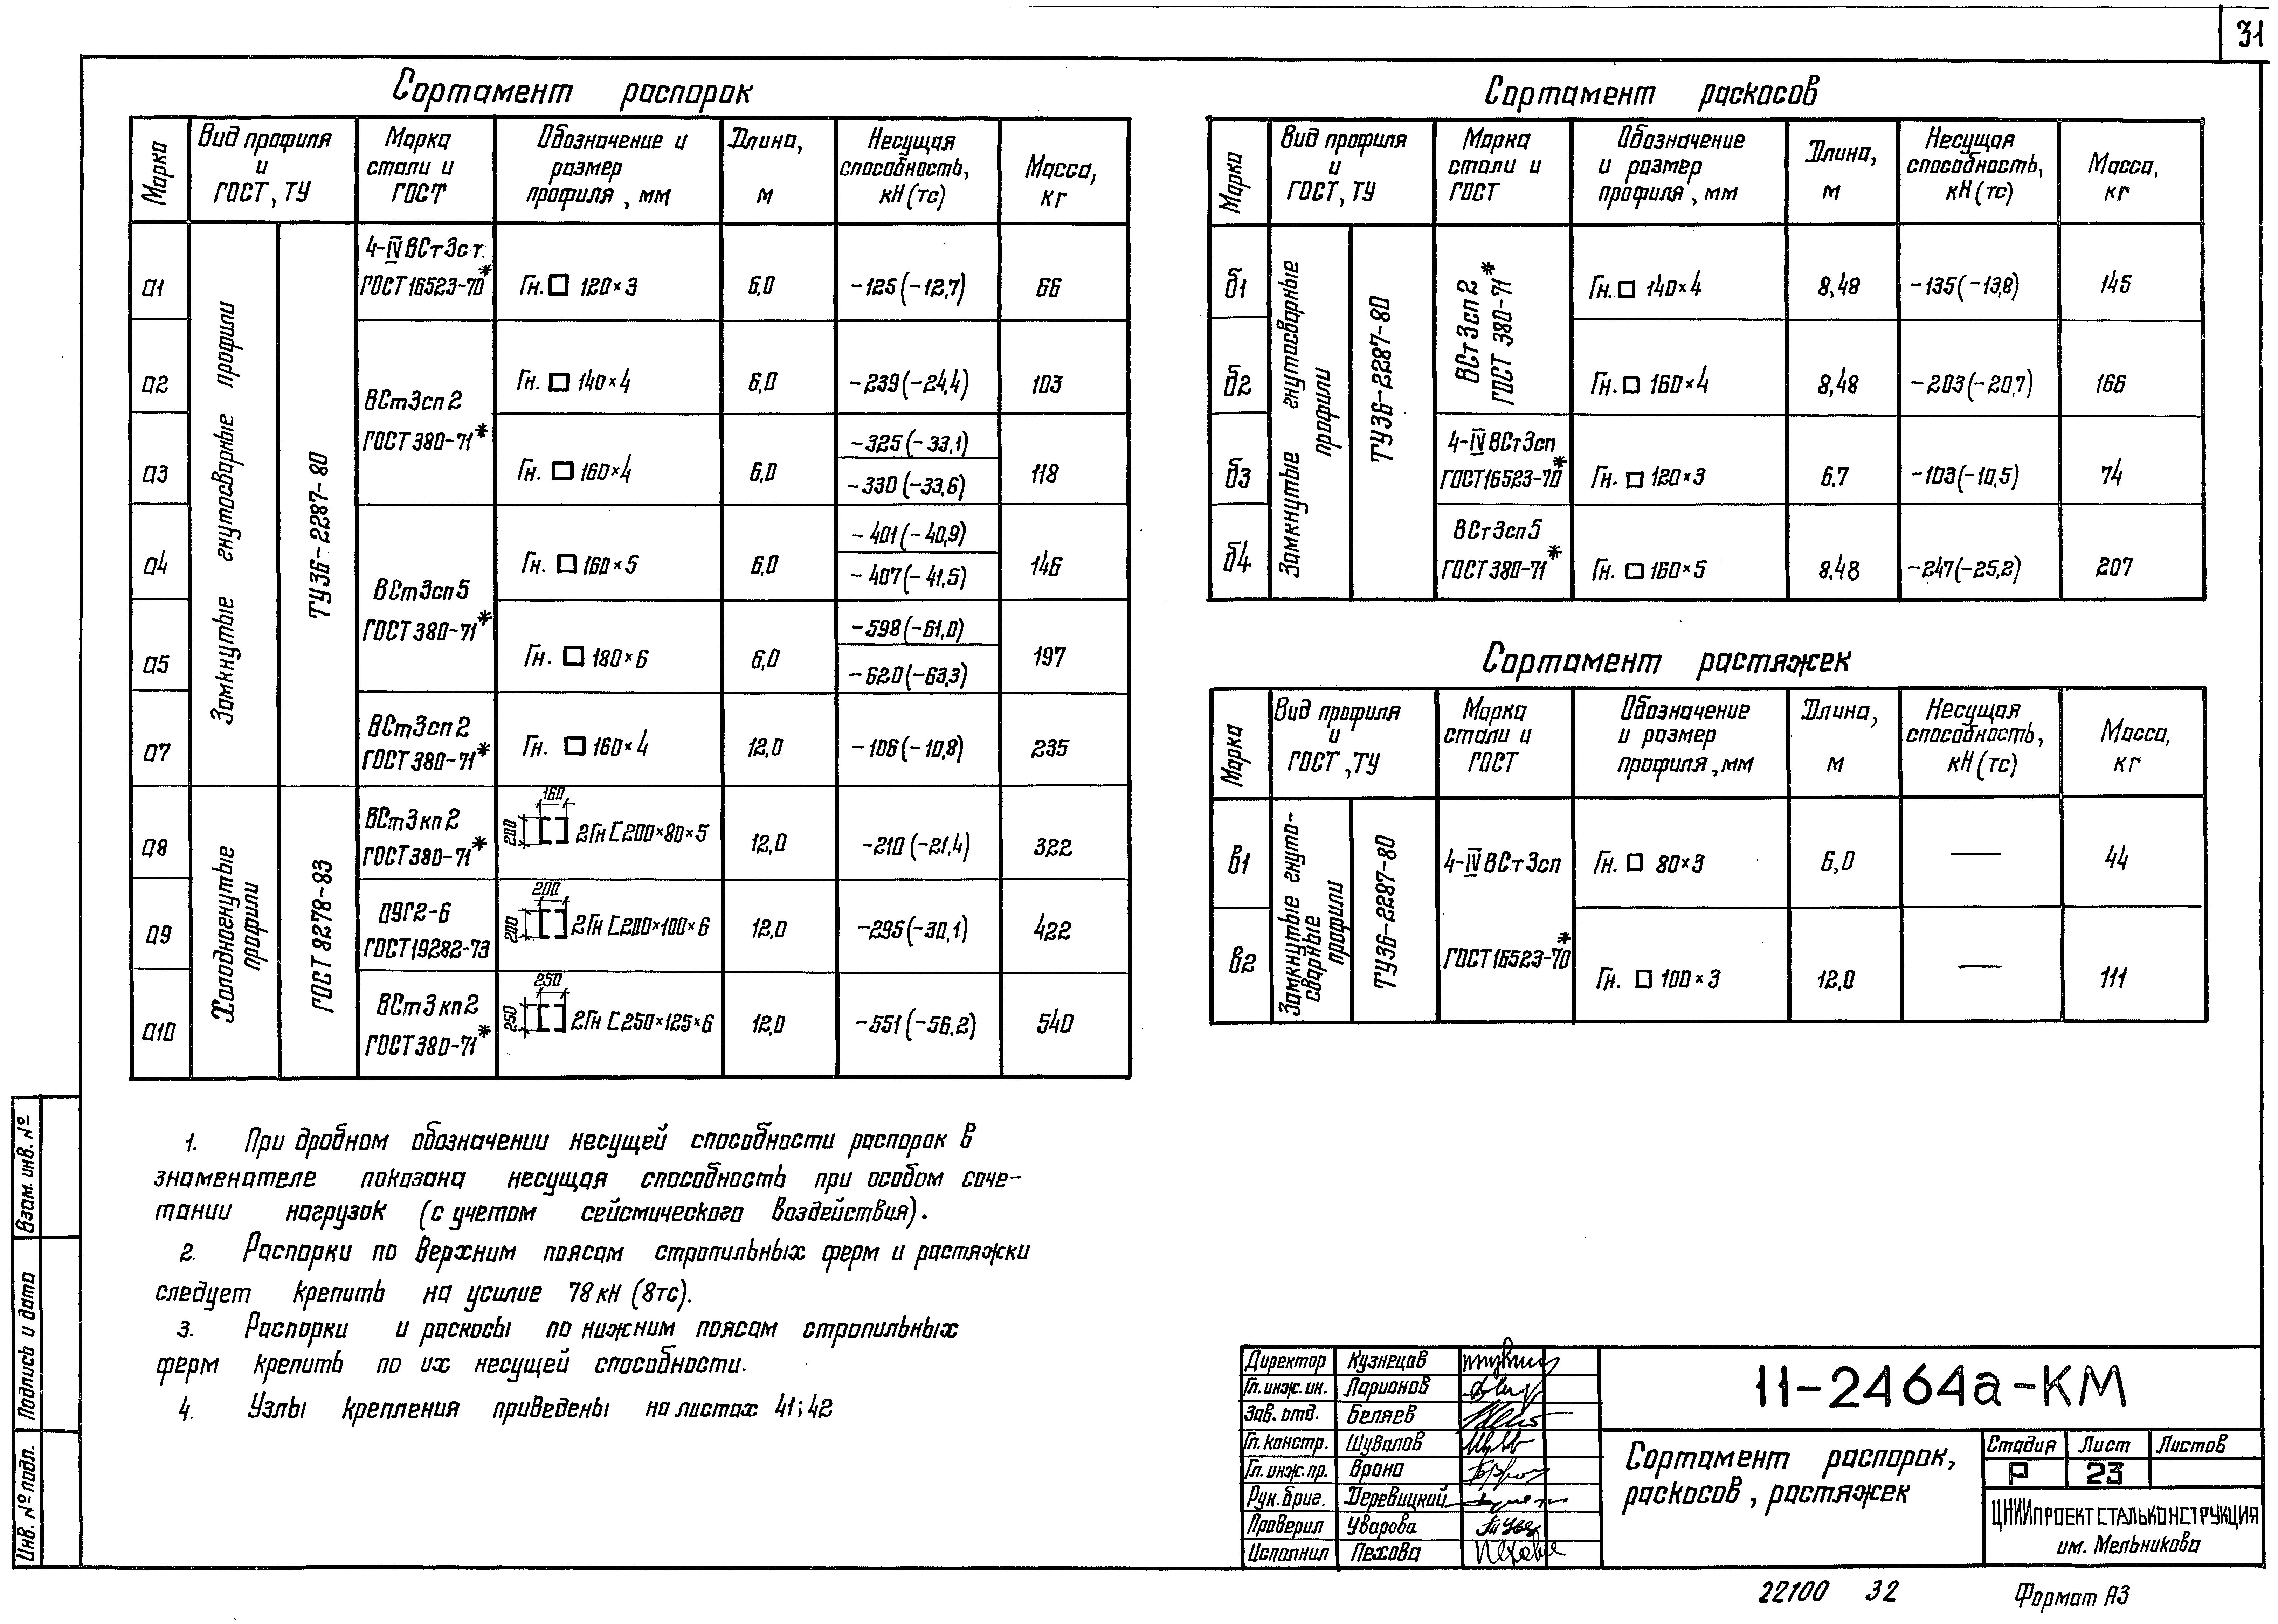 31
Сортамент распорок
Марка
Вид профиля и ГОСТ, ТУ
Марка стали и ГОСТ
Обозначение и размер профиля, мм
Длина, м
Несущая способность, кН (тс)
Масса, кг
Замкнутые гнутосварные профили
ТУ36-2287-80
Холодногнутые профили
ГОСТ 8278-83
а1 4-IVВСт3ст. ГОСТ16523-70* Гн. □ 120×3 6,0 -125(-12,7) 66
а2 ВСт3сп2 ГОСТ380-71* Гн. □ 140×4 6,0 -239(-24,4) 103
а3 Гн. □ 160×4 6,0 -325(-33,1) -330(-33,6) 118
а4 ВСт3сп5 ГОСТ380-71* Гн. □ 160×5 6,0 -401(-40,9) -407(-41,5) 146
а5 Гн. □ 180×6 6,0 -598(-61,0) -620(-63,3) 197
а7 ВСт3сп2 ГОСТ380-71* Гн. □ 160×4 12,0 -106(-10,8) 235
а8 ВСт3кп2 ГОСТ380-71* 160 200 2Гн[200×80×5 12,0 -210(-21,4) 322
а9 09Г2-6 ГОСТ19282-73 200 200 2Гн[200×100×6 12,0 -295(-30,1) 422
а10 ВСт3кп2 ГОСТ380-71* 250 250 2Гн[250×125×6 12,0 -551(-56,2) 540
Сортамент раскосов
Марка
Вид профиля и ГОСТ, ТУ
Марка стали и ГОСТ
Обозначение и размер профиля, мм
Длина, м
Несущая способность, кН (тс)
Масса, кг
Замкнутые гнутосварные профили
ТУ36-2287-80
б1 ВСт3сп2 ГОСТ 380-71* Гн. □ 140×4 8,48 -135(-13,8) 145
б2 Гн. □ 160×4 8,48 -203(-20,7) 166
б3 4-IVВСт3сп ГОСТ16523-70* Гн. □ 120×3 6,7 -103(-10,5) 74
б4 ВСт3сп5 ГОСТ380-71* Гн. □ 160×5 8,48 -247(-25,2) 207
Сортамент растяжек
Марка
Вид профиля и ГОСТ, ТУ
Марка стали и ГОСТ
Обозначение и размер профиля, мм
Длина, м
Несущая способность, кН (тс)
Масса, кг
Замкнутые гнуто-
сварные профили
ТУ36-2287-80
в1 4-IVВСт3сп Гн. □ 80×3 6,0 — 44
в2 ГОСТ16523-70* Гн. □ 100×3 12,0 — 111
1. При дробном обозначении несущей способности распорок в
знаменателе показана несущая способность при особом соче-
тании нагрузок (с учетом сейсмического воздействия).
2. Распорки по верхним поясам стропильных ферм и растяжки
следует крепить на усилие 78 кН (8тс).
3. Распорки и раскосы по нижним поясам стропильных
ферм крепить по их несущей способности.
4. Узлы крепления приведены на листах 41; 42
Взам. инв. №
Подпись и дата
Инв. № подл.
Директор Кузнецов
Гл. инж. ин. Ларионов
Зав. отд. Беляев
Гл. констр. Шувалов
Гл. инж. пр. Врона
Рук. бриг. Деревицкий
Проверил Уварова
Исполнил Пехова
11-2464а-КМ
Сортамент распорок,
раскосов, растяжек
Стадия Лист Листов
Р 23
ЦНИИПРОЕКТСТАЛЬКОНСТРУКЦИЯ
им. Мельникова
22100 32
Формат А3